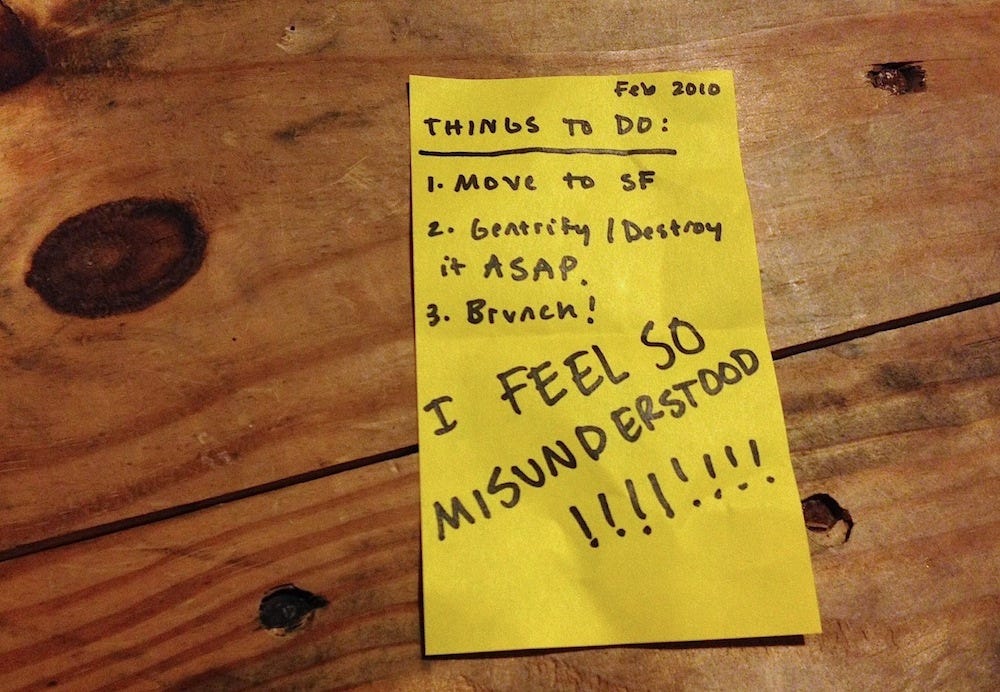 Feb 2010
THINGS TO DO:
1. Move to SF
2. Gentrify / Destroy
it ASAP.
3. Brunch!
I FEEL SO
MISUNDERSTOOD
!!!!!!!!